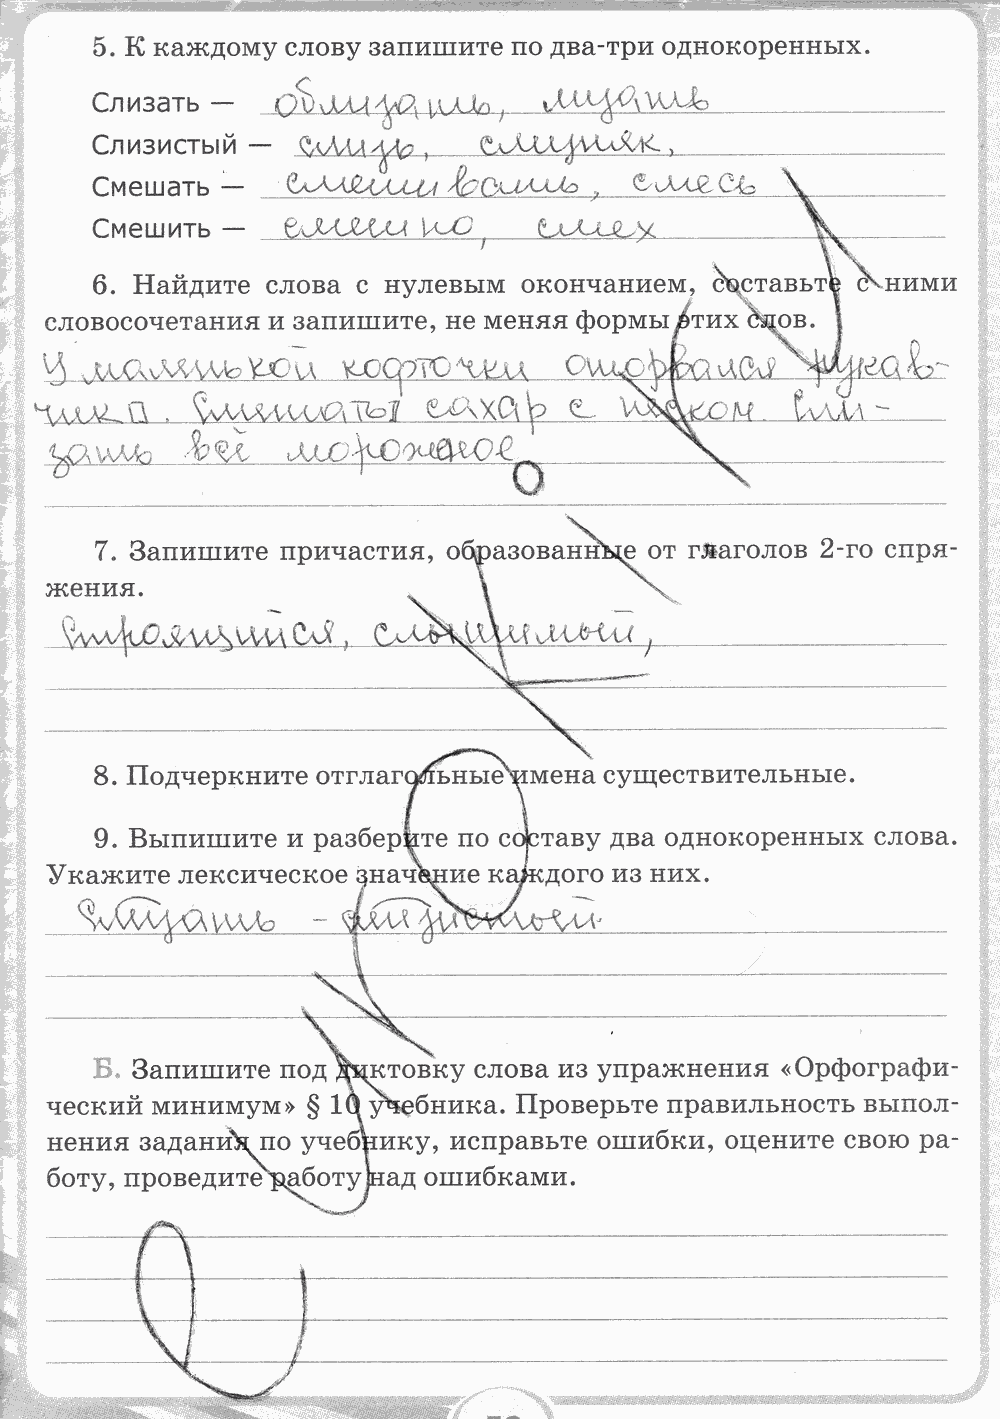 5. К каждому слову запишите по два-три однокоренных.
Слизать — облизать, лизать
Слизистый — слизь, слизняк,
Смешать — смешивать, смесь
Смешить — смешно, смех
6. Найдите слова с нулевым окончанием, составьте с ними
словосочетания и запишите, не меняя формы этих слов.
У маленькой кофточки оторвался рукав-
чик. Смешать сахар с песком. Сли-
зать всё мороженое
7. Запишите причастия, образованные от глаголов 2-го спря-
жения.
Строящийся, слышимый,
8. Подчеркните отглагольные имена существительные.
9. Выпишите и разберите по составу два однокоренных слова.
Укажите лексическое значение каждого из них.
Слизать - слизистый.
Б. Запишите под диктовку слова из упражнения «Орфографи-
ческий минимум» § 10 учебника. Проверьте правильность выпол-
нения задания по учебнику, исправьте ошибки, оцените свою ра-
боту, проведите работу над ошибками.